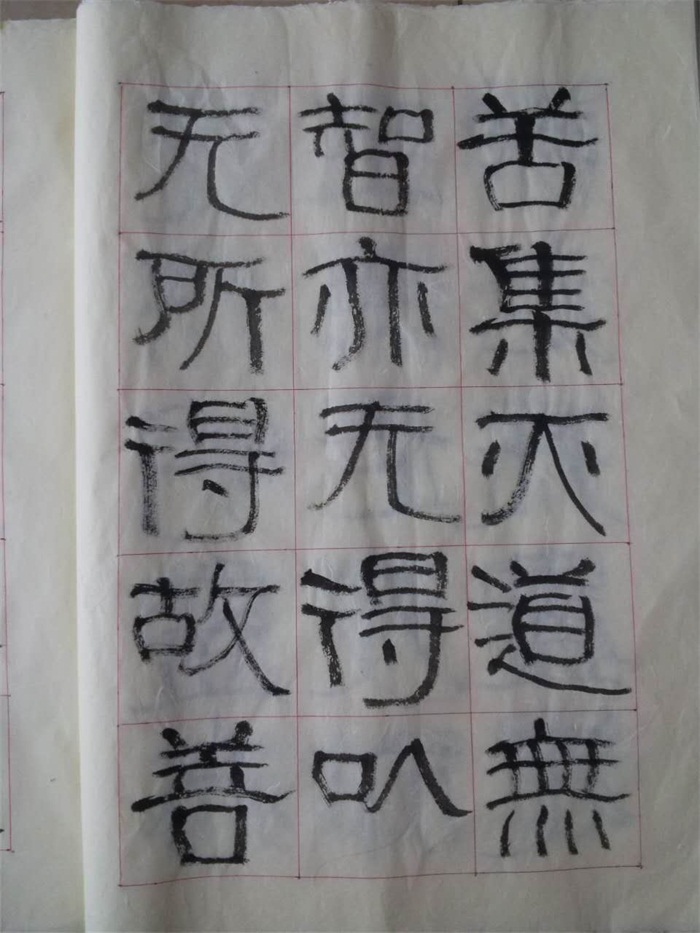 苦集灭道無
智亦无得以
无所得故菩